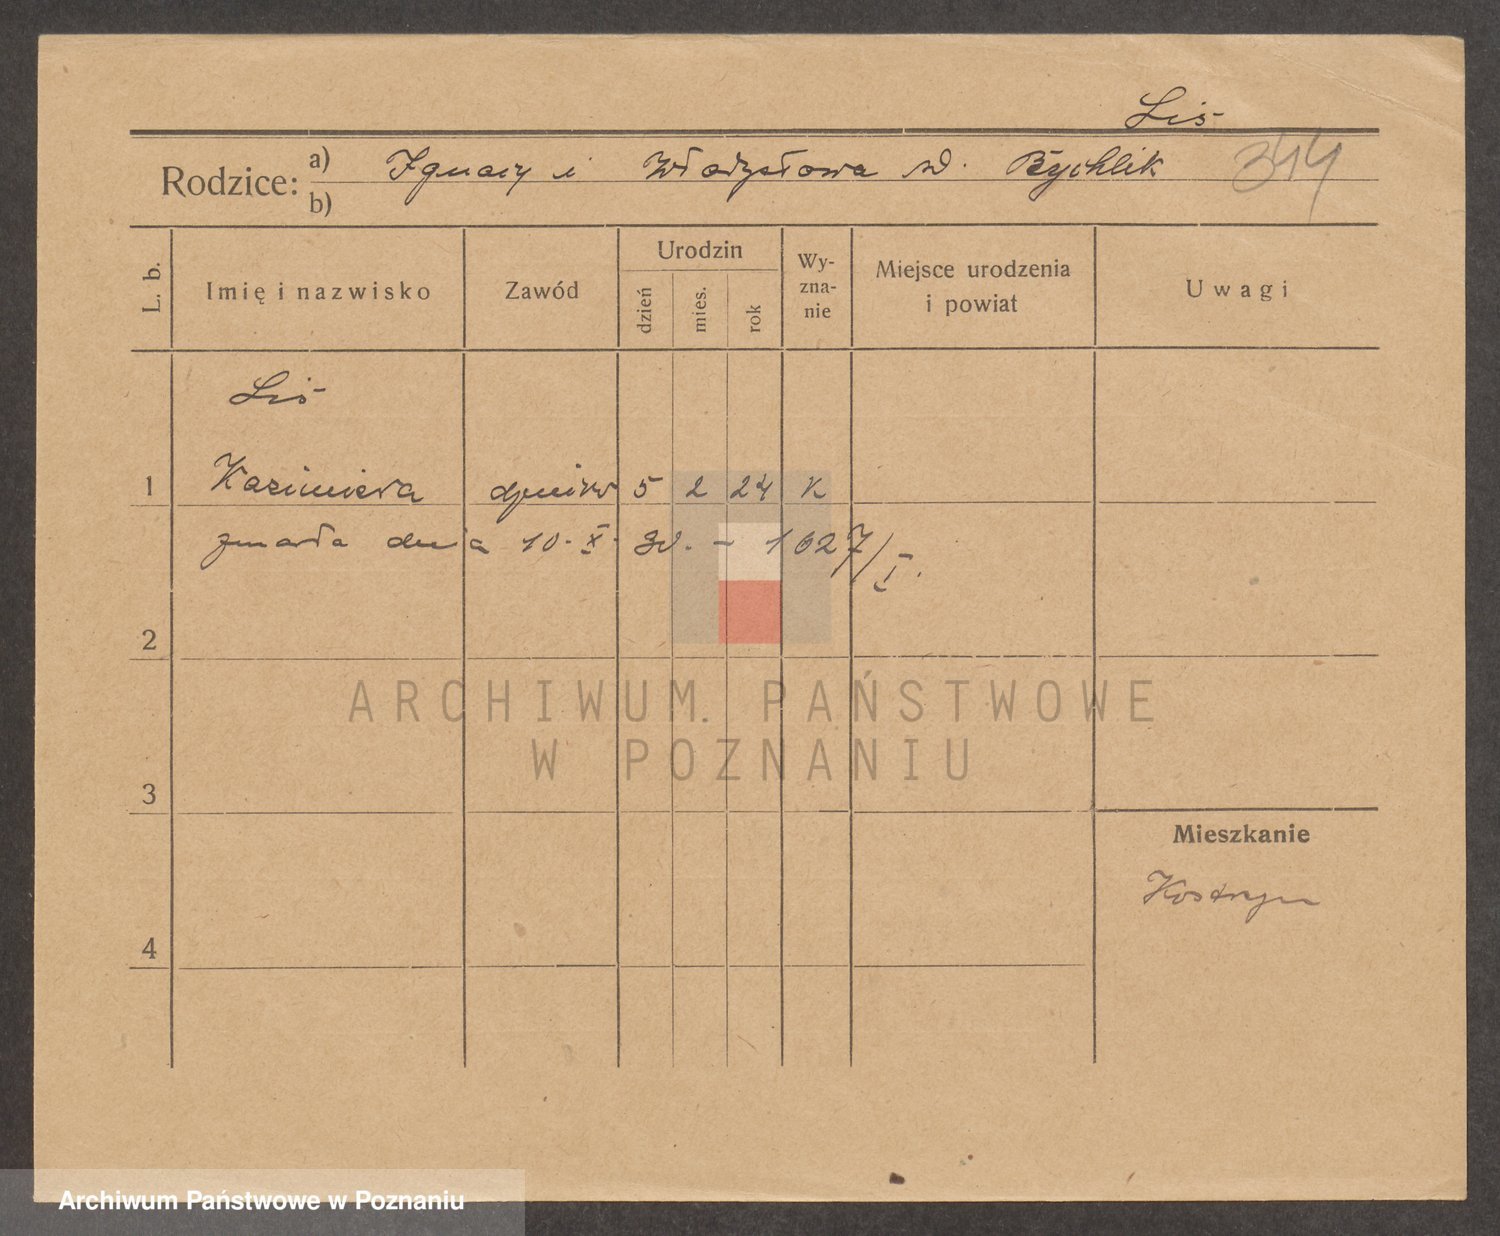 Liś
Rodzice: a) Ignacy i Władysława d. Rychlik 344
b)
L. b. Imię i nazwisko Zawód Urodzin dzień mies. rok Wy-zna-nie Miejsce urodzenia i powiat Uwagi
Liś
1 Kazimiera 5 2 24 K
zmarła dnia 10. X. 30. – 1027/I.
2
ARCHIWUM PAŃSTWOWE
W POZNANIU
3
Mieszkanie
Kostrzyn
4
Archiwum Państwowe w Poznaniu